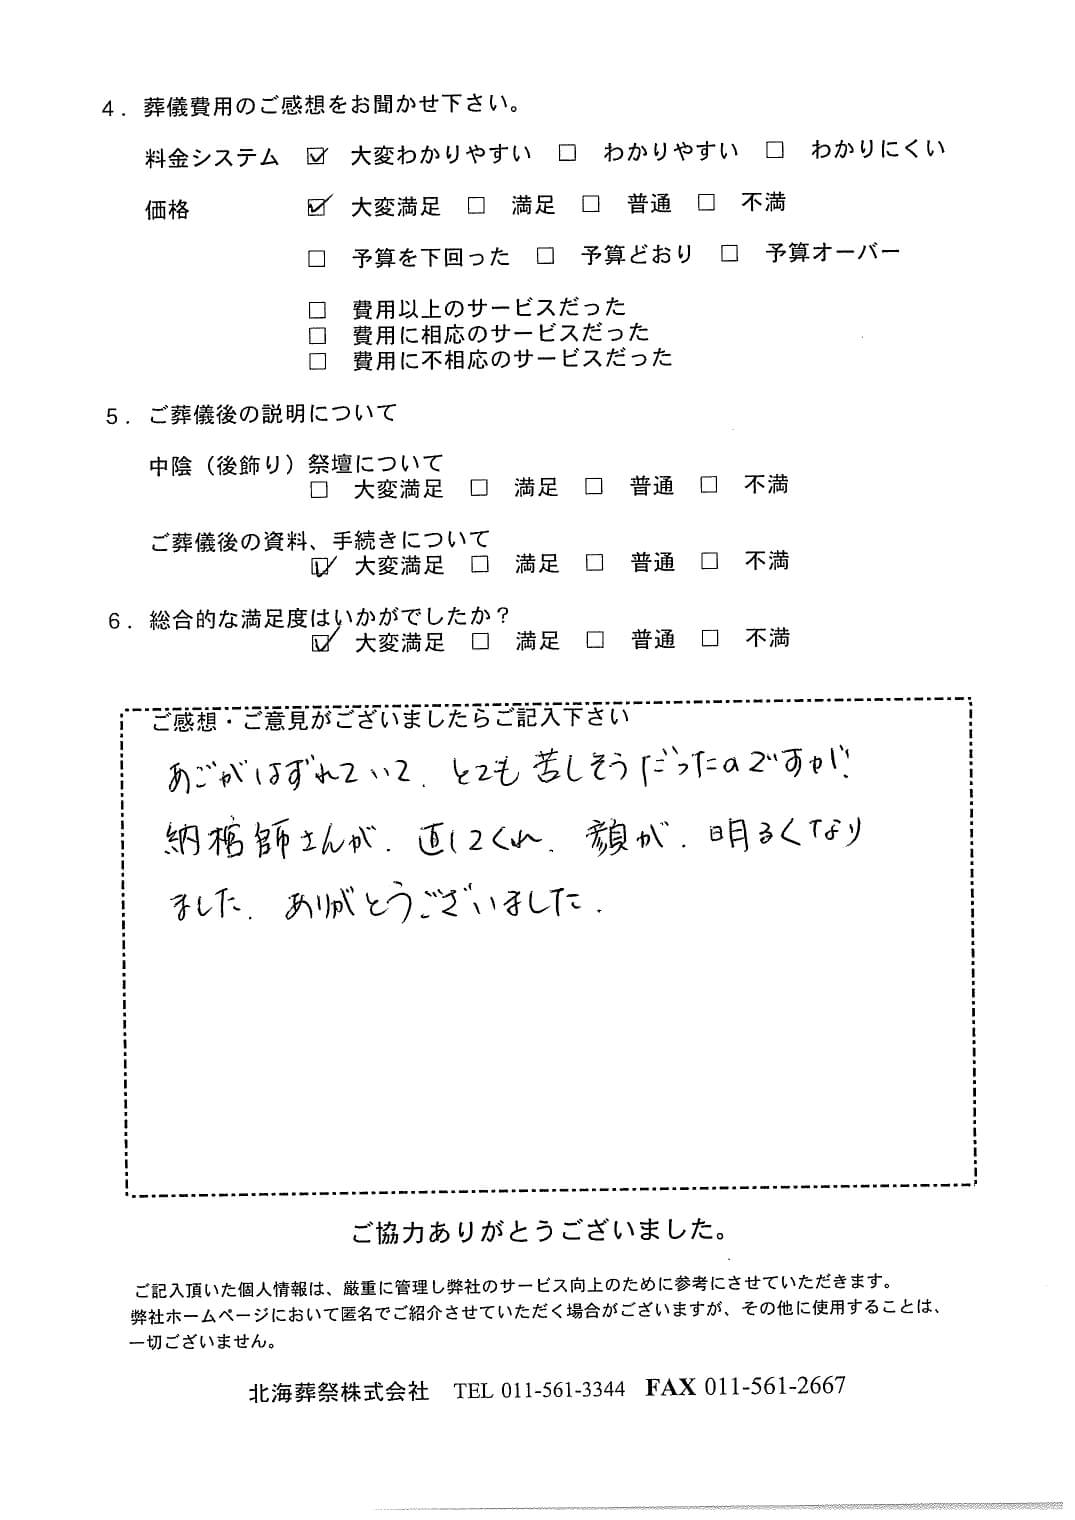 4．葬儀費用のご感想をお聞かせ下さい。
料金システム ☑ 大変わかりやすい □ わかりやすい □ わかりにくい
価格 ☑ 大変満足 □ 満足 □ 普通 □ 不満
□ 予算を下回った □ 予算どおり □ 予算オーバー
□ 費用以上のサービスだった
□ 費用に相応のサービスだった
□ 費用に不相応のサービスだった
5．ご葬儀後の説明について
中陰（後飾り）祭壇について
□ 大変満足 □ 満足 □ 普通 □ 不満
ご葬儀後の資料、手続きについて
☑ 大変満足 □ 満足 □ 普通 □ 不満
6．総合的な満足度はいかがでしたか？
☑ 大変満足 □ 満足 □ 普通 □ 不満
ご感想・ご意見がございましたらご記入下さい
あごがはずれていて、とても苦しそうだったのですが、
納棺師さんが、直してくれ、顔が、明るくなり
ました、ありがとうございました．
ご協力ありがとうございました。
ご記入頂いた個人情報は、厳重に管理し弊社のサービス向上のために参考にさせていただきます。
弊社ホームページにおいて匿名でご紹介させていただく場合がございますが、その他に使用することは、
一切ございません。
北海葬祭株式会社 TEL 011-561-3344 FAX 011-561-2667